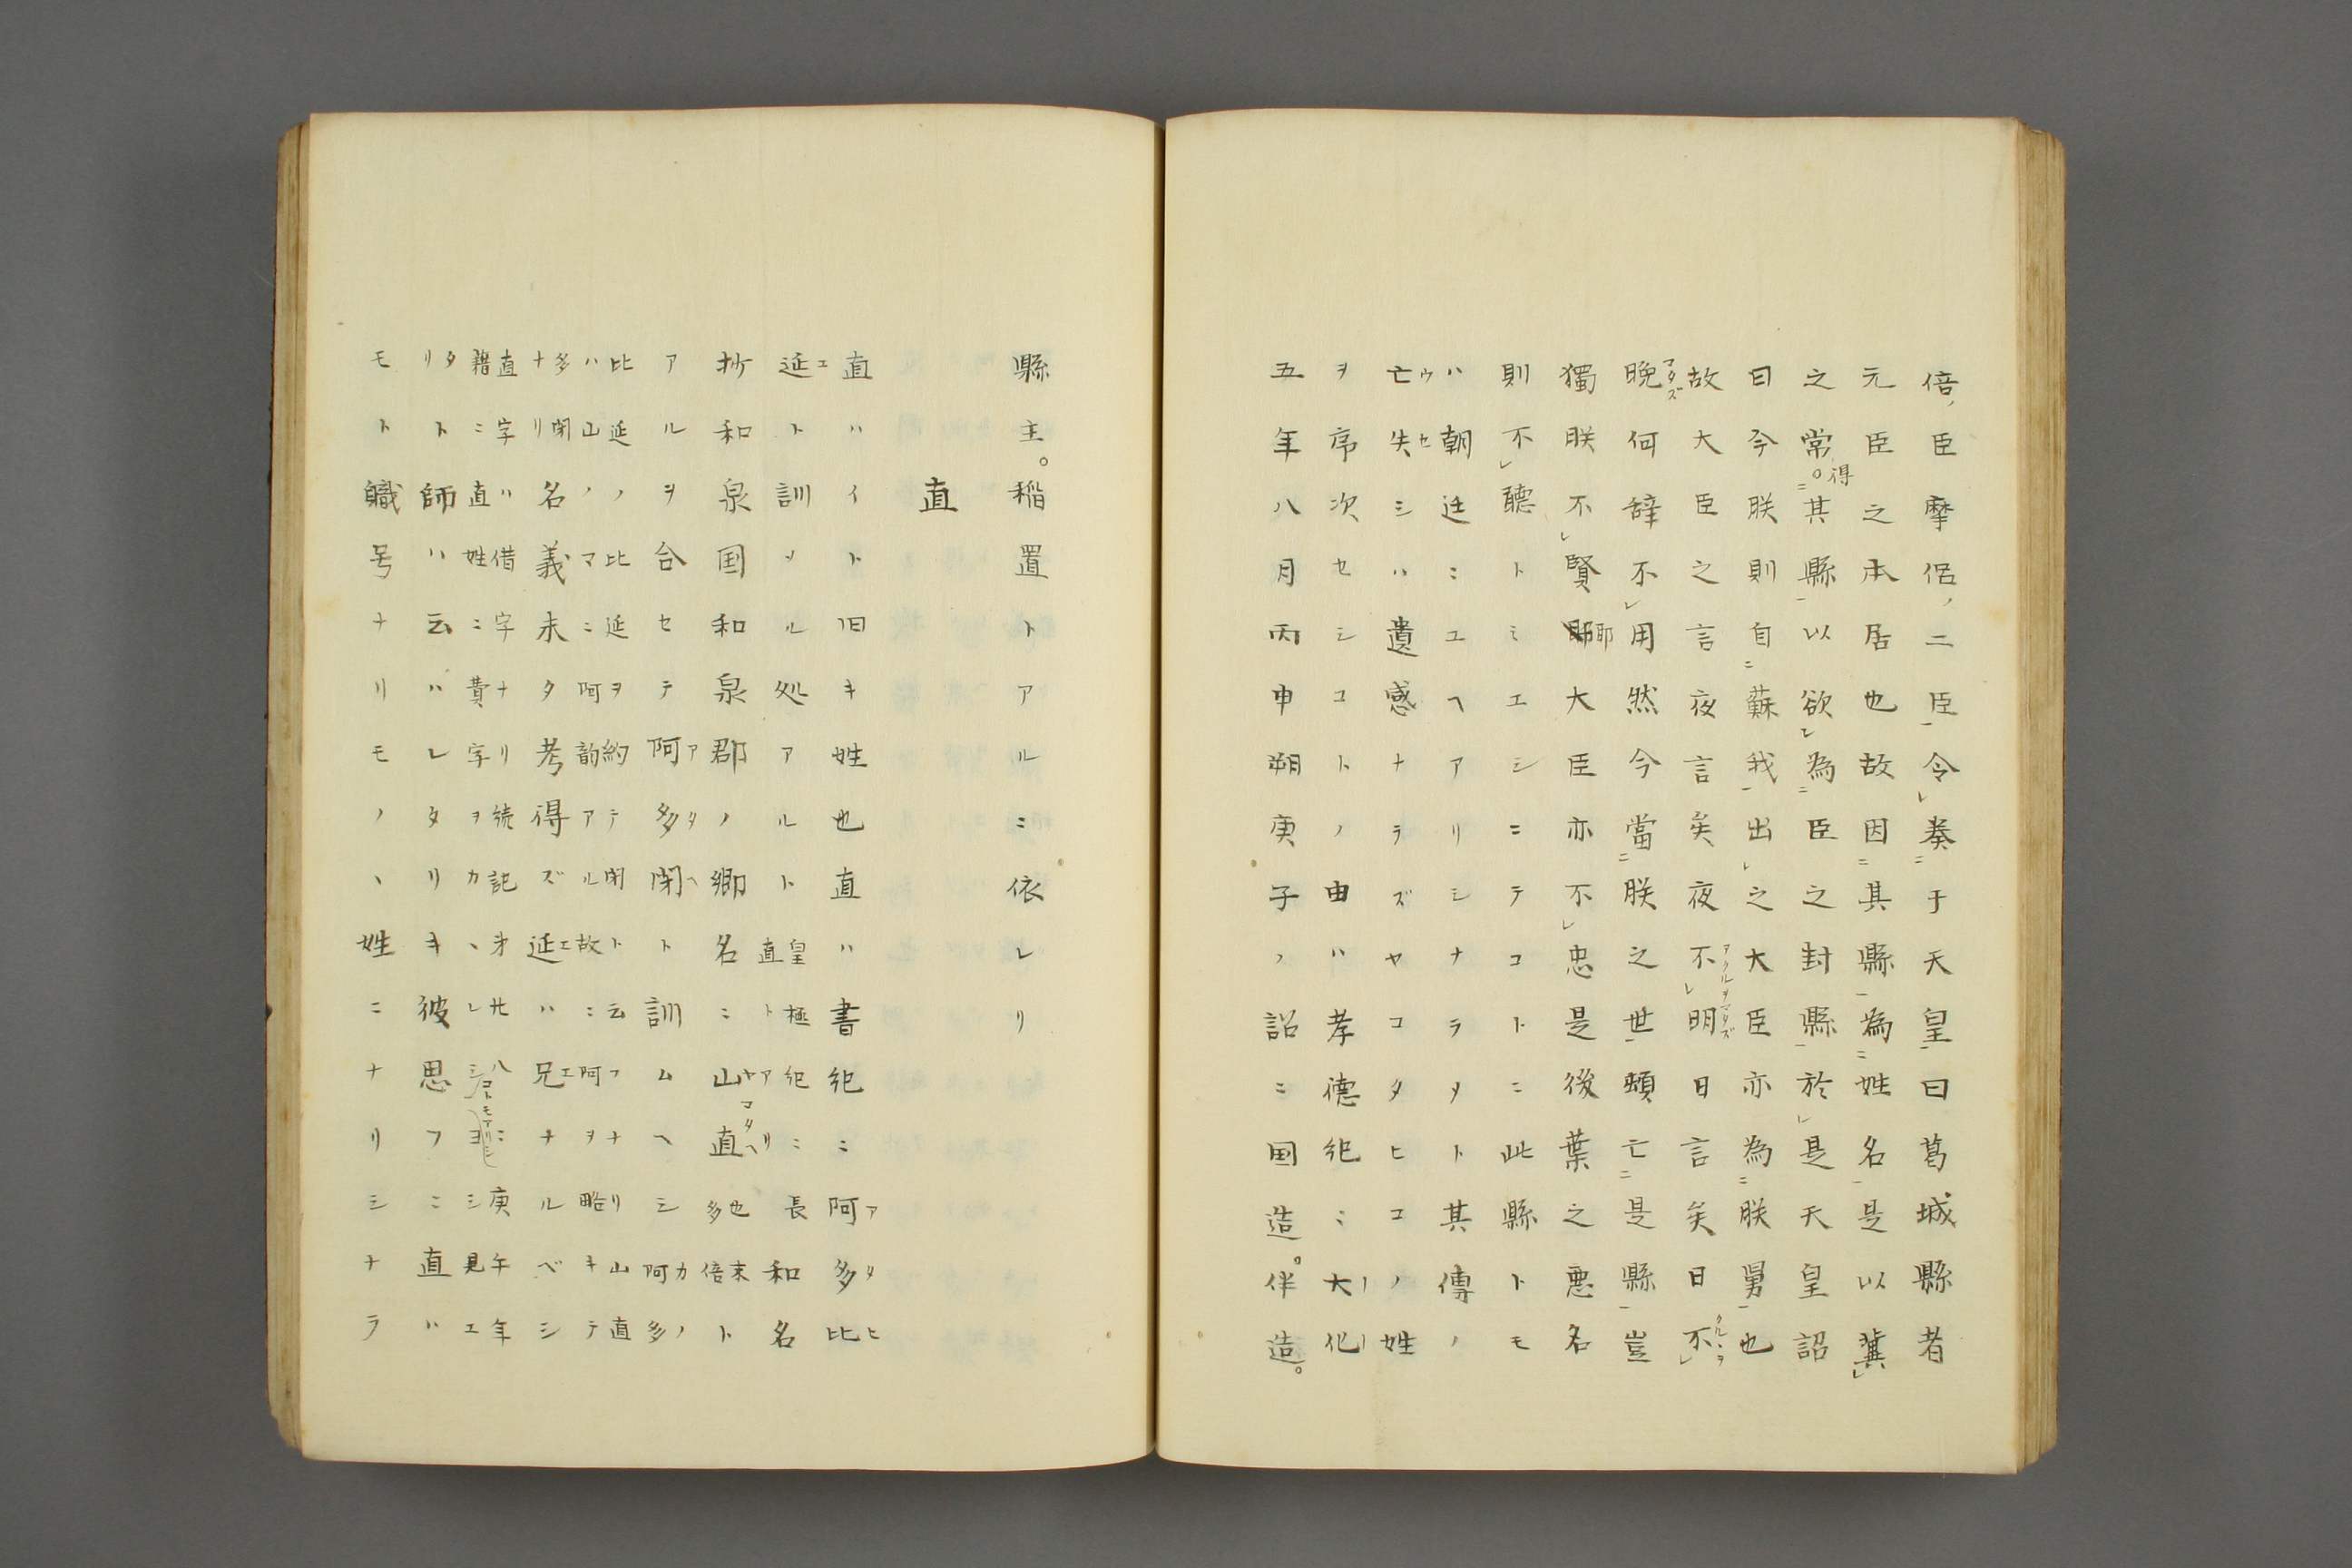 倍臣摩侶二臣令奏于天皇曰葛城縣者
元臣之本居也故因其縣為姓名是以冀
之常得其縣以欲為臣之封縣於是天皇詔
曰今朕則自蘇我出之大臣亦為朕舅也
故大臣之言夜言矣夜不明日言矣日不
晩何辞不用然今當朕之世頓亡是縣豈
獨朕不賢耶大臣亦不忠是後葉之悪名
則不聴トミエシニテコトニ此縣トモ
ハ朝廷ニユヘアリシナラヌト其傳ノ
亡失セシハ遺憾ナラズヤコタヒコノ姓
ヲ序次セシコトノ由ハ孝徳紀ニ大化
五年八月丙申朔庚子ノ詔ニ国造。伴造。
縣主。稲置トアルニ依レリ
直
直ハイト旧キ姓也直ハ書紀ニ阿多比
延ト訓ソル処アルト皇極紀ニ長直トアリ和名
抄和泉国和泉郡ノ郷名ニ山直也末多倍ト
アルヲ合セテ阿多閉ト訓ムヘシ阿多
比延ノ比延ヲ約テ閉ト云フナリ山直ハ山ノマニ阿韵アル故ニ阿ヲ略キテ
多閉ナリ名義未タ考得ズ延ハ兄ナルベシ
直字ハ借字ナリ続記第廿八ニ庚午年籍ニ直姓ニ費字ヲカヽレシコトモアリシヨシ見エ
タリト師ハ云ハレタリキ彼思フニ直ハ
モト職号ナリモノヽ姓ニナリシナラ